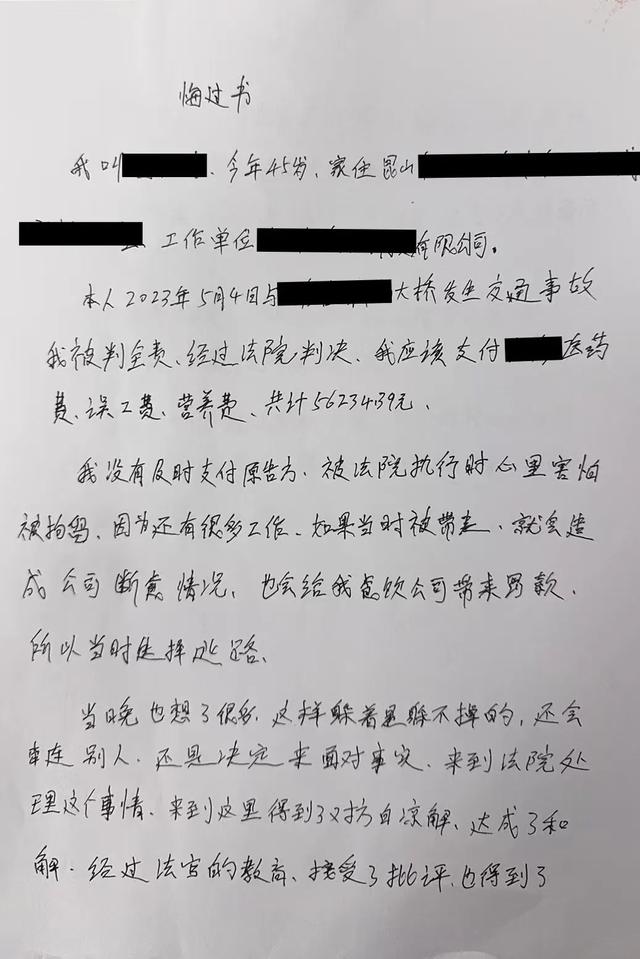 悔过书
我叫 、今年45岁、家住昆山
工作单位 有限公司。
本人2023年5月4日与 大桥发生交通事故
我被判全责、经过法院判决、我应该支付 医药
费、误工费、营养费、共计56234.39元、
我没有及时支付原告方、被法院执行时心里害怕
被拘留、因为还有很多工作、如果当时被带走、就会造
成公司断 情况、也会给我 饮公司带来 款、
所以当时选择逃路、
当晚也想了很多、这样躲着是躲不掉的,还会
牵连别人、还是决定来面对事实、来到法院处
理这个事情、来到这里得到了对方自凉解、达成了和
解、经过法官的教育、接受了批评、也得到了